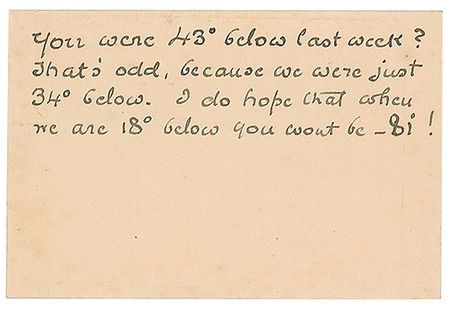 You were 43° below last week?
That's odd, because we were just
34° below. I do hope that when
we are 18° below you wont be -81°!